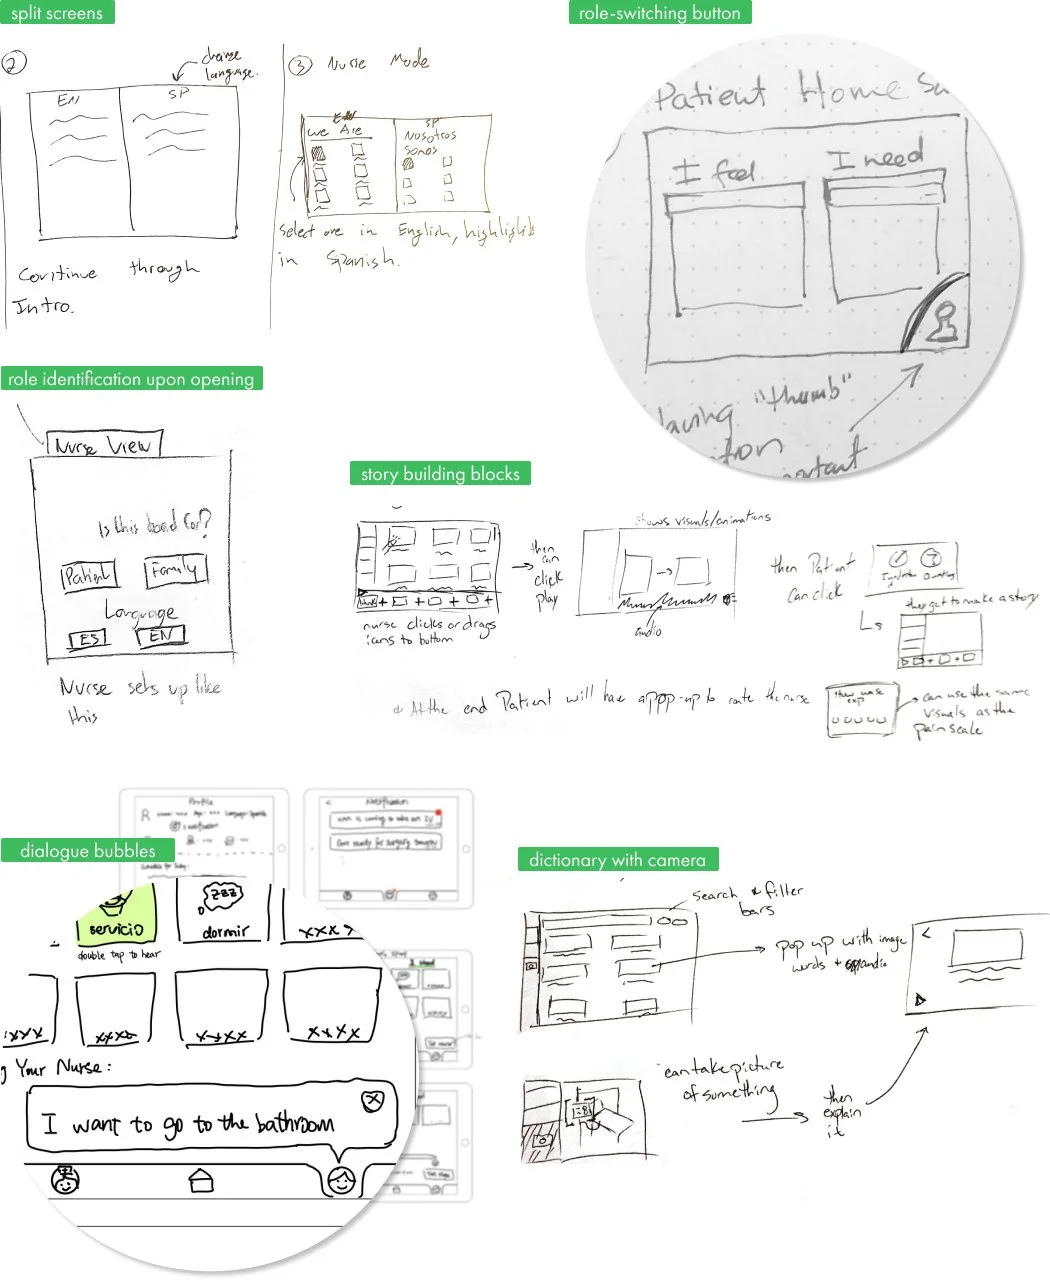 split screens
role-switching button
2
change
language.
EN
SP
Continue through
Intro.
3 Nurse Mode
We Are
SP
Nosotros
somos
Select one in English, highlights
in Spanish.
Patient Home
I feel
I need
"thumb"
role identification upon opening
Nurse View
Is this board for?
Patient
Family
Language
ES
EN
Nurse sets up like
this
story building blocks
nurse clicks or drags
icons to bottom
then
can
click
play
shows visuals/animations
audio
then Patient
can click
then get to make a story
At the end Patient will have a pop-up to rate the nurse
can use the same
visuals as the
pain scale
dialogue bubbles
Profile
Notification
servicio
double tap to hear
zzz
dormir
xxxx
xxxx
xxxx
xxxx
xxxx
Your Nurse:
I want to go to the bathroom
dictionary with camera
search & filter
bars
pop up with image
words + audio
can take picture
of something
then
explain
it